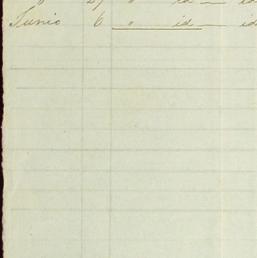 27 " id — id
Junio 6 " id — id